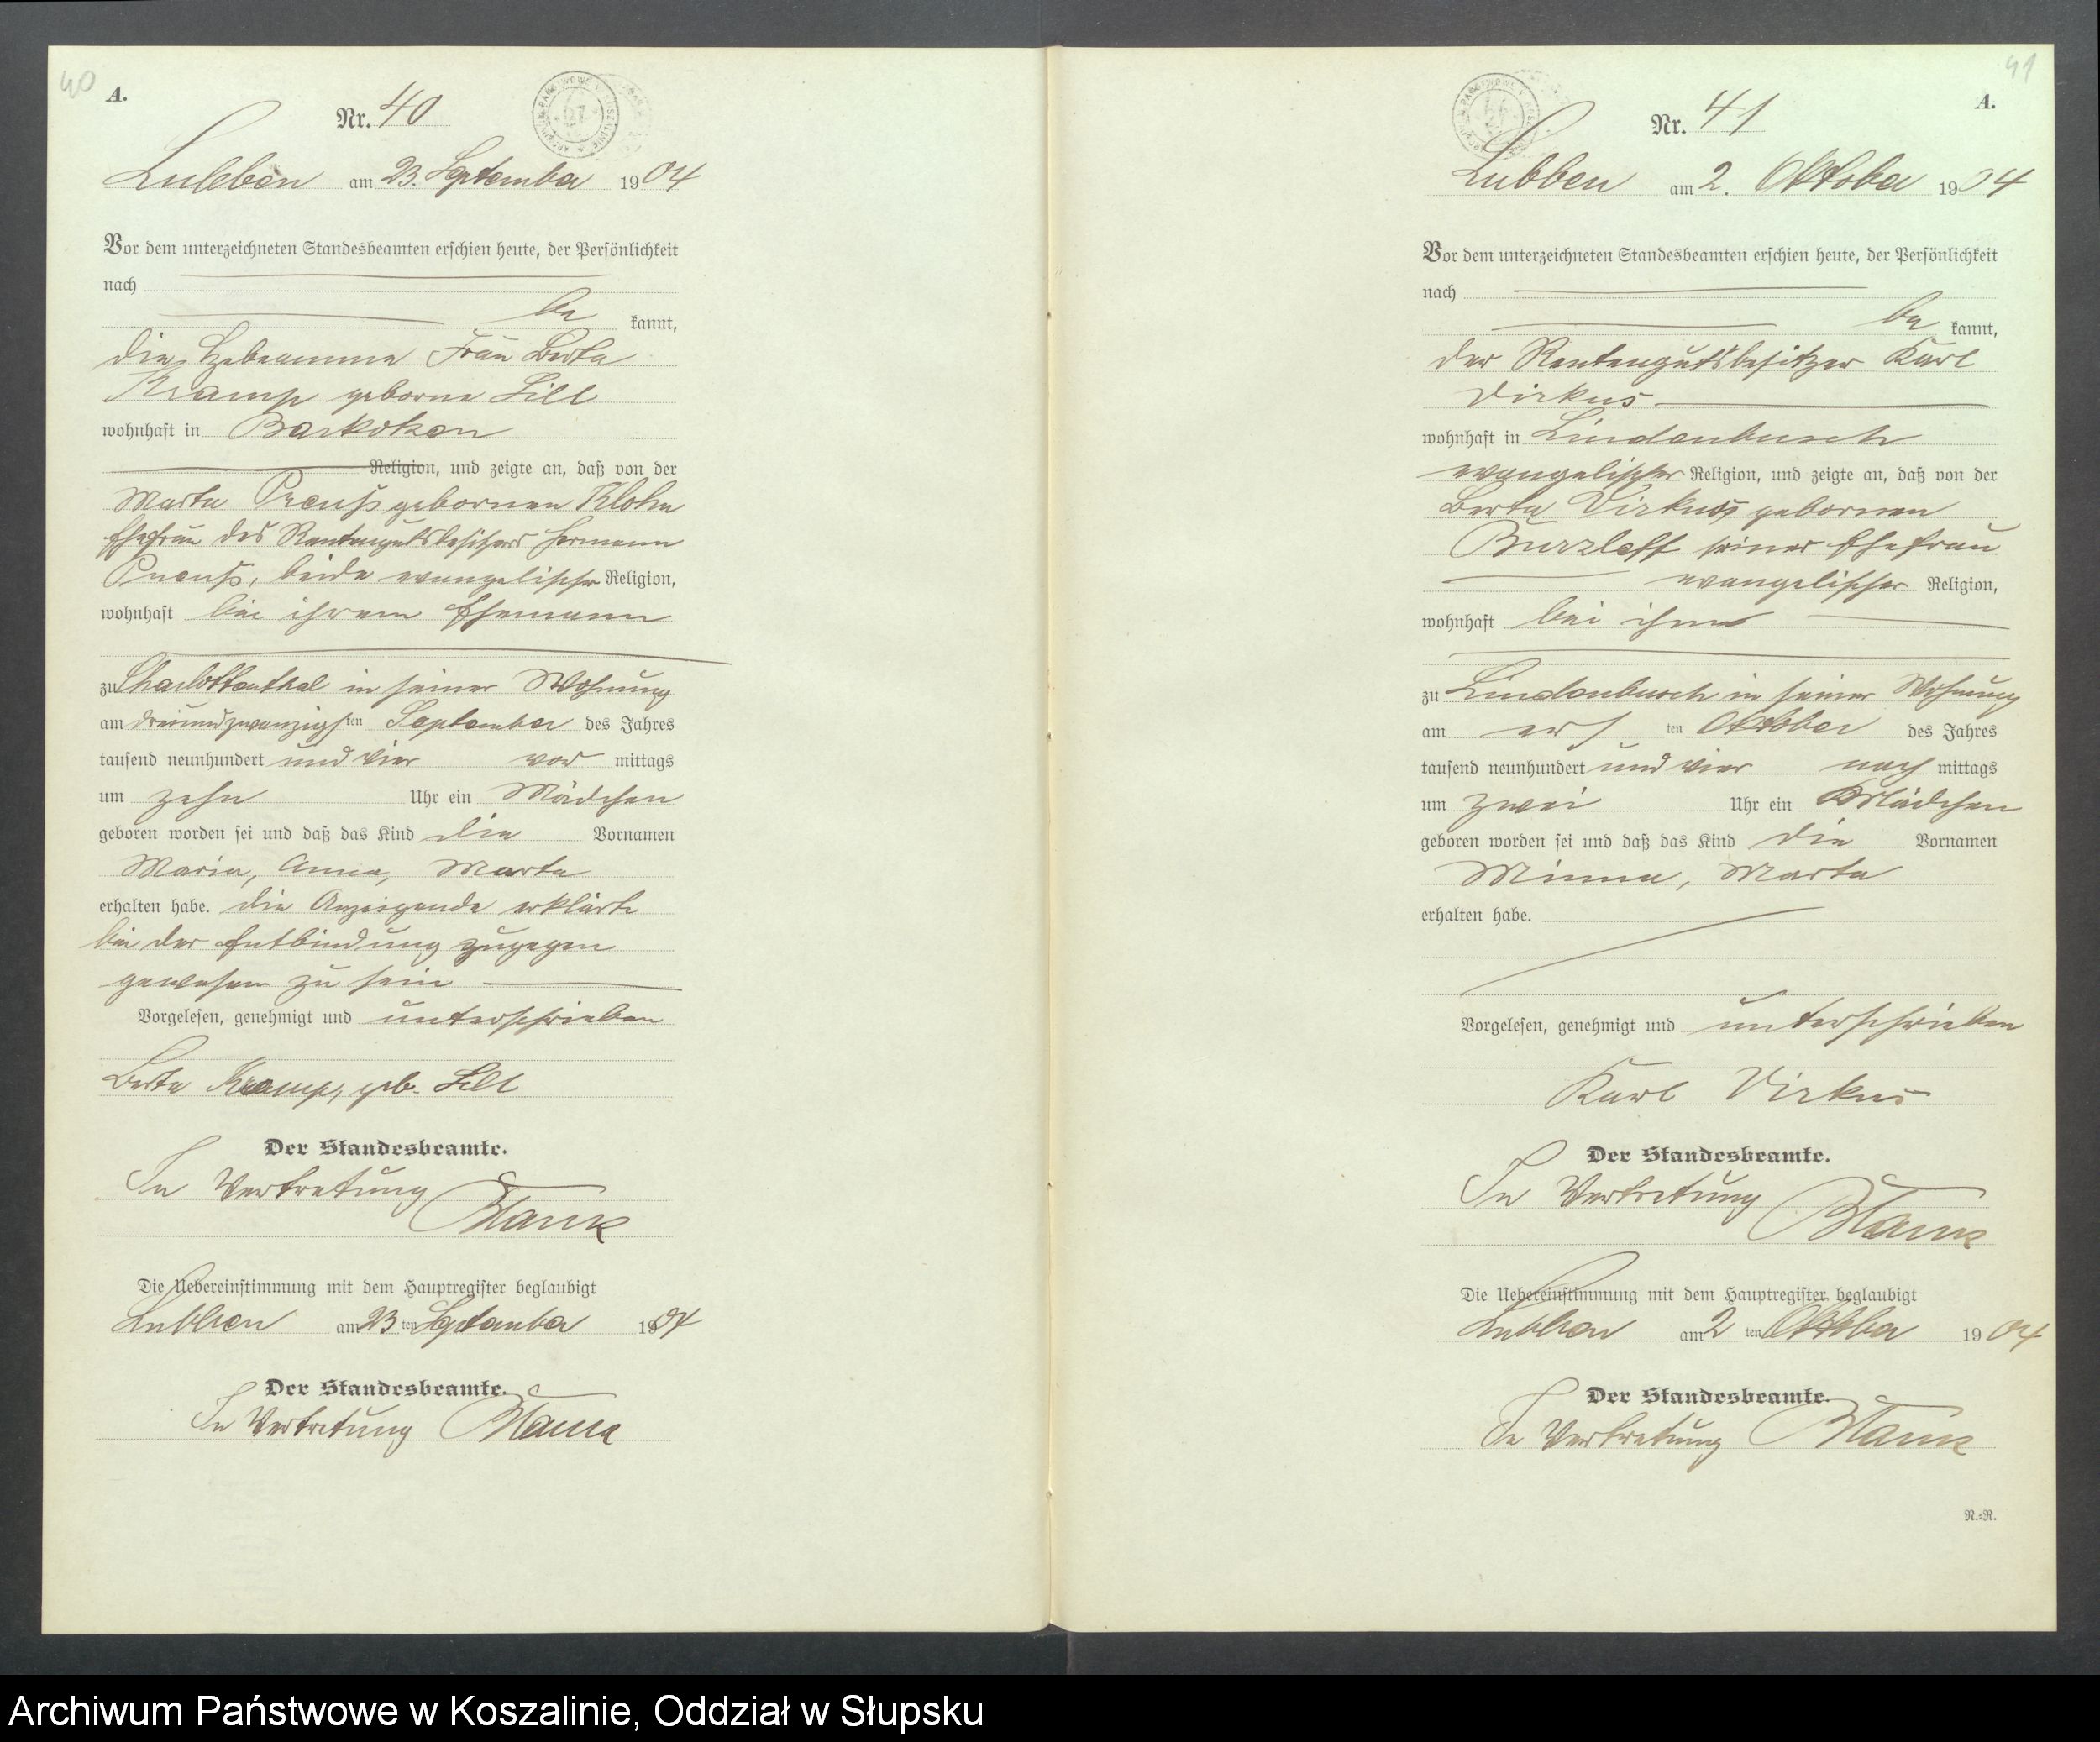 40
A.
Nr. 40
Lubben am 23. September 1904
Vor dem unterzeichneten Standesbeamten erschien heute, der Persönlichkeit
nach
be kannt,
die Hebeamme Frau Berta
Kramp geborne Lill
wohnhaft in Barkoken
Religion, und zeigte an, daß von der
Marta Preuß gebornen Klohn
Ehefrau des Rentengutsbesitzers Hermann
Preuß, beide evangelischer Religion,
wohnhaft bei ihrem Ehemann
zu Charlottenthal in seiner Wohnung
am dreiundzwanzigsten September des Jahres
tausend neunhundert und vier vor mittags
um zehn Uhr ein Mädchen
geboren worden sei und daß das Kind die Vornamen
Maria, Anna, Marta
erhalten habe. Die Anzeigende erklärte
bei der Entbindung zugegen
gewesen zu sein
Vorgelesen, genehmigt und unterschrieben
Berta Kramp, geb. Lill
Der Standesbeamte.
In Vertretung
Blank
Die Uebereinstimmung mit dem Hauptregister beglaubigt
Lubben am 23 ten September 1904
Der Standesbeamte.
In Vertretung Blank
41
A.
Nr. 41
Lubben am 2. Oktober 1904
Vor dem unterzeichneten Standesbeamten erschien heute, der Persönlichkeit
nach
be kannt,
der Rentengutsbesitzer Karl
Virkus
wohnhaft in Lindenbusch
evangelischer Religion, und zeigte an, daß von der
Berta Virkus gebornen
Burzlaff seiner Ehefrau
evangelischer Religion,
wohnhaft bei ihm
zu Lindenbusch in seiner Wohnung
am ers ten Oktober des Jahres
tausend neunhundert und vier nach mittags
um zwei Uhr ein Mädchen
geboren worden sei und daß das Kind die Vornamen
Minna, Marta
erhalten habe.
Vorgelesen, genehmigt und unterschrieben
Karl Virkus
Der Standesbeamte.
In Vertretung
Blank
Die Uebereinstimmung mit dem Hauptregister beglaubigt
Lubben am 2 ten Oktober 1904
Der Standesbeamte.
In Vertretung Blank
N.=R.
Archiwum Państwowe w Koszalinie, Oddział w Słupsku